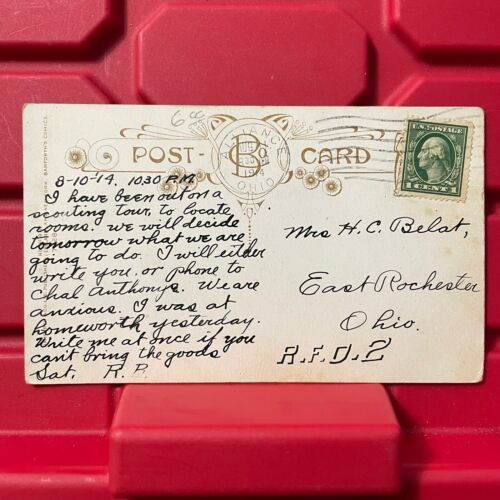 68
U.S. POSTAGE
1 CENT 1
ALLIANCE
1914
OHIO
POST-CARD
BAMFORTH'S COMICS.
8-10-'14. 10.30 P.M.
I have been out on a
scouting tour, to locate
rooms. we will decide
tomorrow what we are
going to do. I will either
write you, or phone to
Chal Anthonys. We are
anxious. I was at
homeworth yesterday.
Write me at once if you
can't bring the goods
Sat. R. B.
Mrs H. C. Belat,
East Rochester
Ohio.
R.F.D. 2